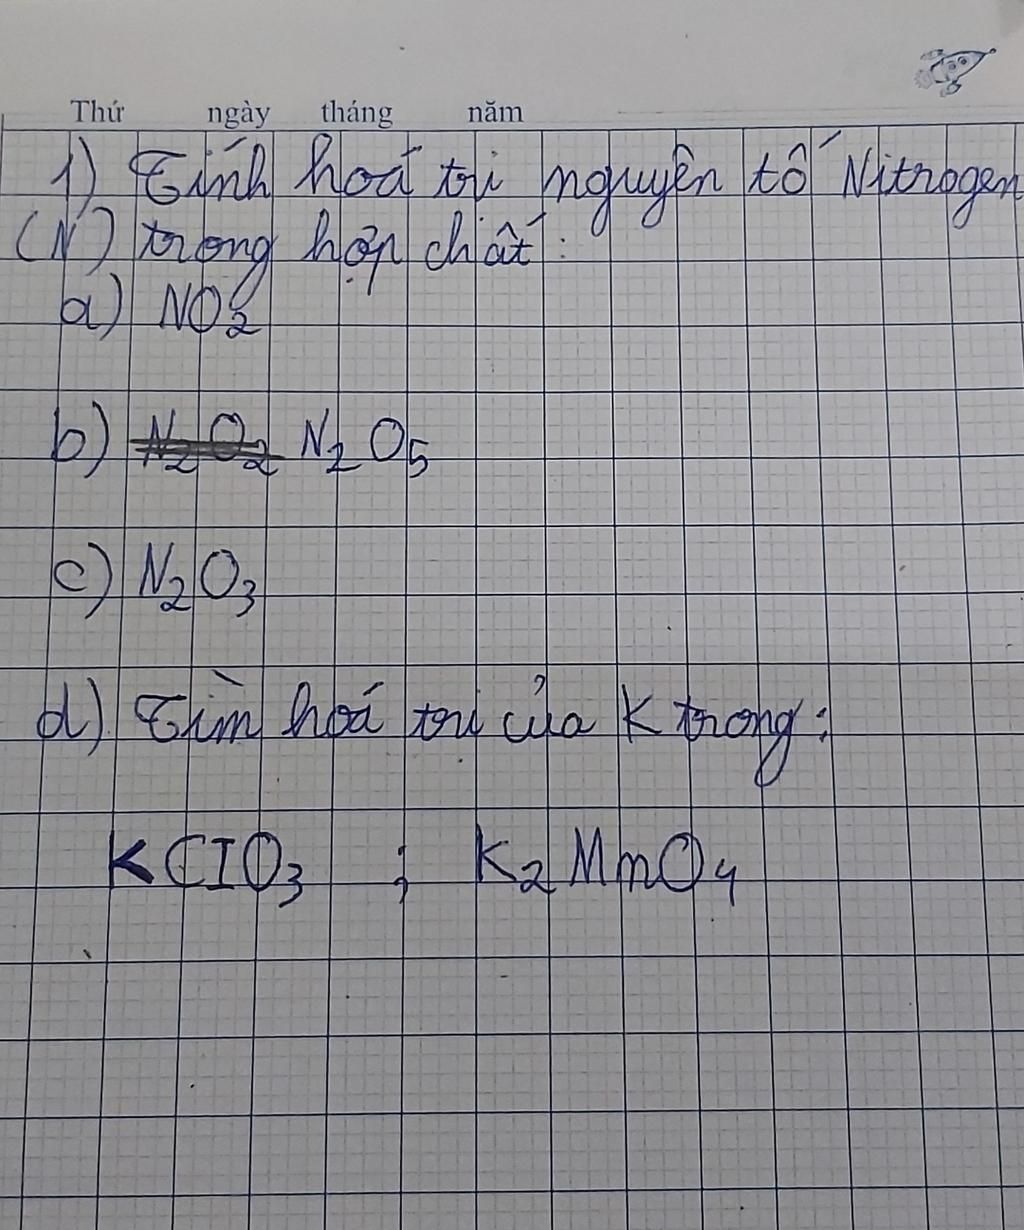 Thứ ngày tháng năm
1) Tính hoá trị nguyên tố Nitrogen
(N) trong hợp chất:
a) NO2
b) N2O2 N2O5
c) N2O3
d) Tìm hoá trị của K trong:
KClO3 ; K2MnO4